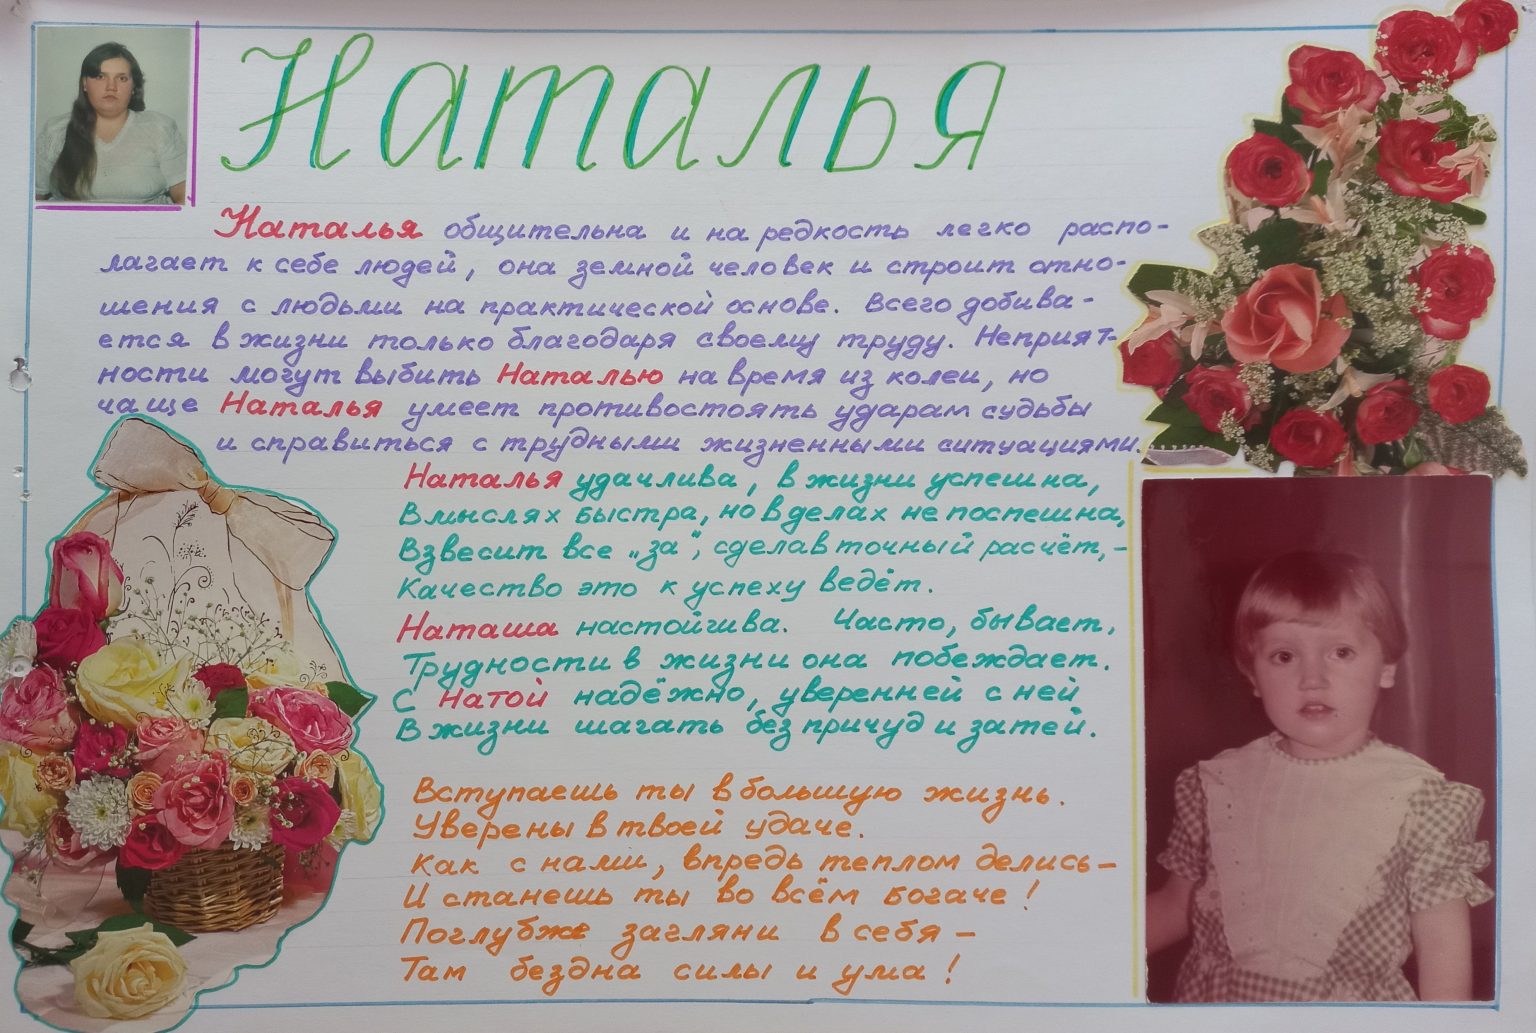 Наталья
Наталья общительна и на редкость легко распо-
лагает к себе людей, она земной человек и строит отно-
шения с людьми на практической основе. Всего добива-
ется в жизни только благодаря своему труду. Неприят-
ности могут выбить Наталью на время из колеи, но
чаще Наталья умеет противостоять ударам судьбы
и справиться с трудными жизненными ситуациями.
Наталья удачлива, в жизни успешна,
В мыслях быстра, но в делах не поспешна,
Взвесит все „за“, сделав точный расчёт, –
Качество это к успеху ведёт.
Наташа настойчива. Часто, бывает,
Трудности в жизни она побеждает.
С Натой надёжно, уверенней с ней
В жизни шагать без причуд и затей.
Вступаешь ты в большую жизнь.
Уверены в твоей удаче.
Как с нами, впредь теплом делись –
И станешь ты во всём богаче!
Поглубже загляни в себя –
Там бездна силы и ума!